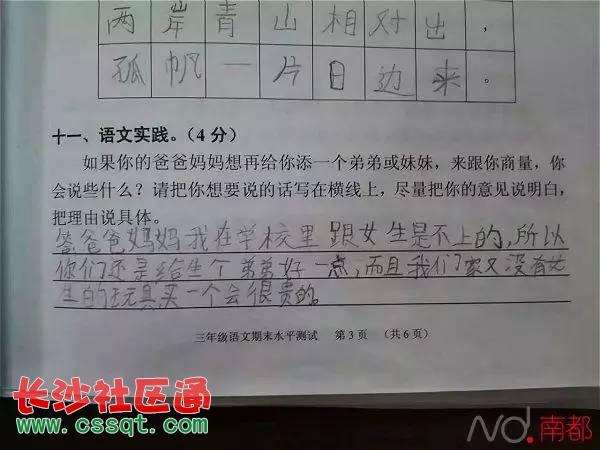 两岸青山相对出，
孤帆一片日边来。
十一、语文实践。（4分）
如果你的爸爸妈妈想再给你添一个弟弟或妹妹，来跟你商量，你
会说些什么？请把你想要说的话写在横线上，尽量把你的意见说明白，
把理由说具体。
答爸爸妈妈我在学校里跟女生是不上的，所以
你们还是给生个弟弟好一点，而且我们家又没有女
生的玩具买一个会很贵的。
三年级语文期末水平测试 第3页 （共6页）
长沙社区通
www.cssqt.com
nd.南都